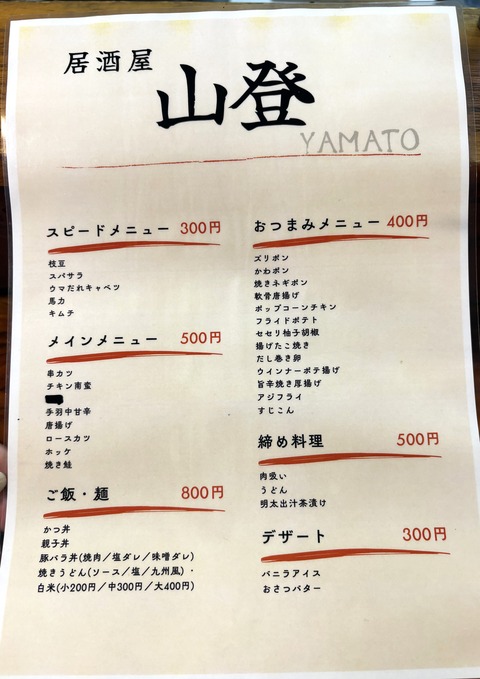 居酒屋
山登
YAMATO
スピードメニュー 300円
枝豆
スパサラ
ウマだれキャベツ
馬力
キムチ
メインメニュー 500円
串カツ
チキン南蛮
手羽中甘辛
唐揚げ
ロースカツ
ホッケ
焼き鮭
ご飯・麺 800円
かつ丼
親子丼
豚バラ丼(焼肉/塩ダレ/味噌ダレ)
焼きうどん(ソース/塩/九州風)・
白米(小200円/中300円/大400円)
おつまみメニュー 400円
ズリポン
かわポン
焼きネギポン
軟骨唐揚げ
ポップコーンチキン
フライドポテト
セセリ柚子胡椒
揚げたこ焼き
だし巻き卵
ウインナーポテ揚げ
旨辛焼き厚揚げ
アジフライ
すじこん
締め料理 500円
肉吸い
うどん
明太出汁茶漬け
デザート 300円
バニラアイス
おさつバター